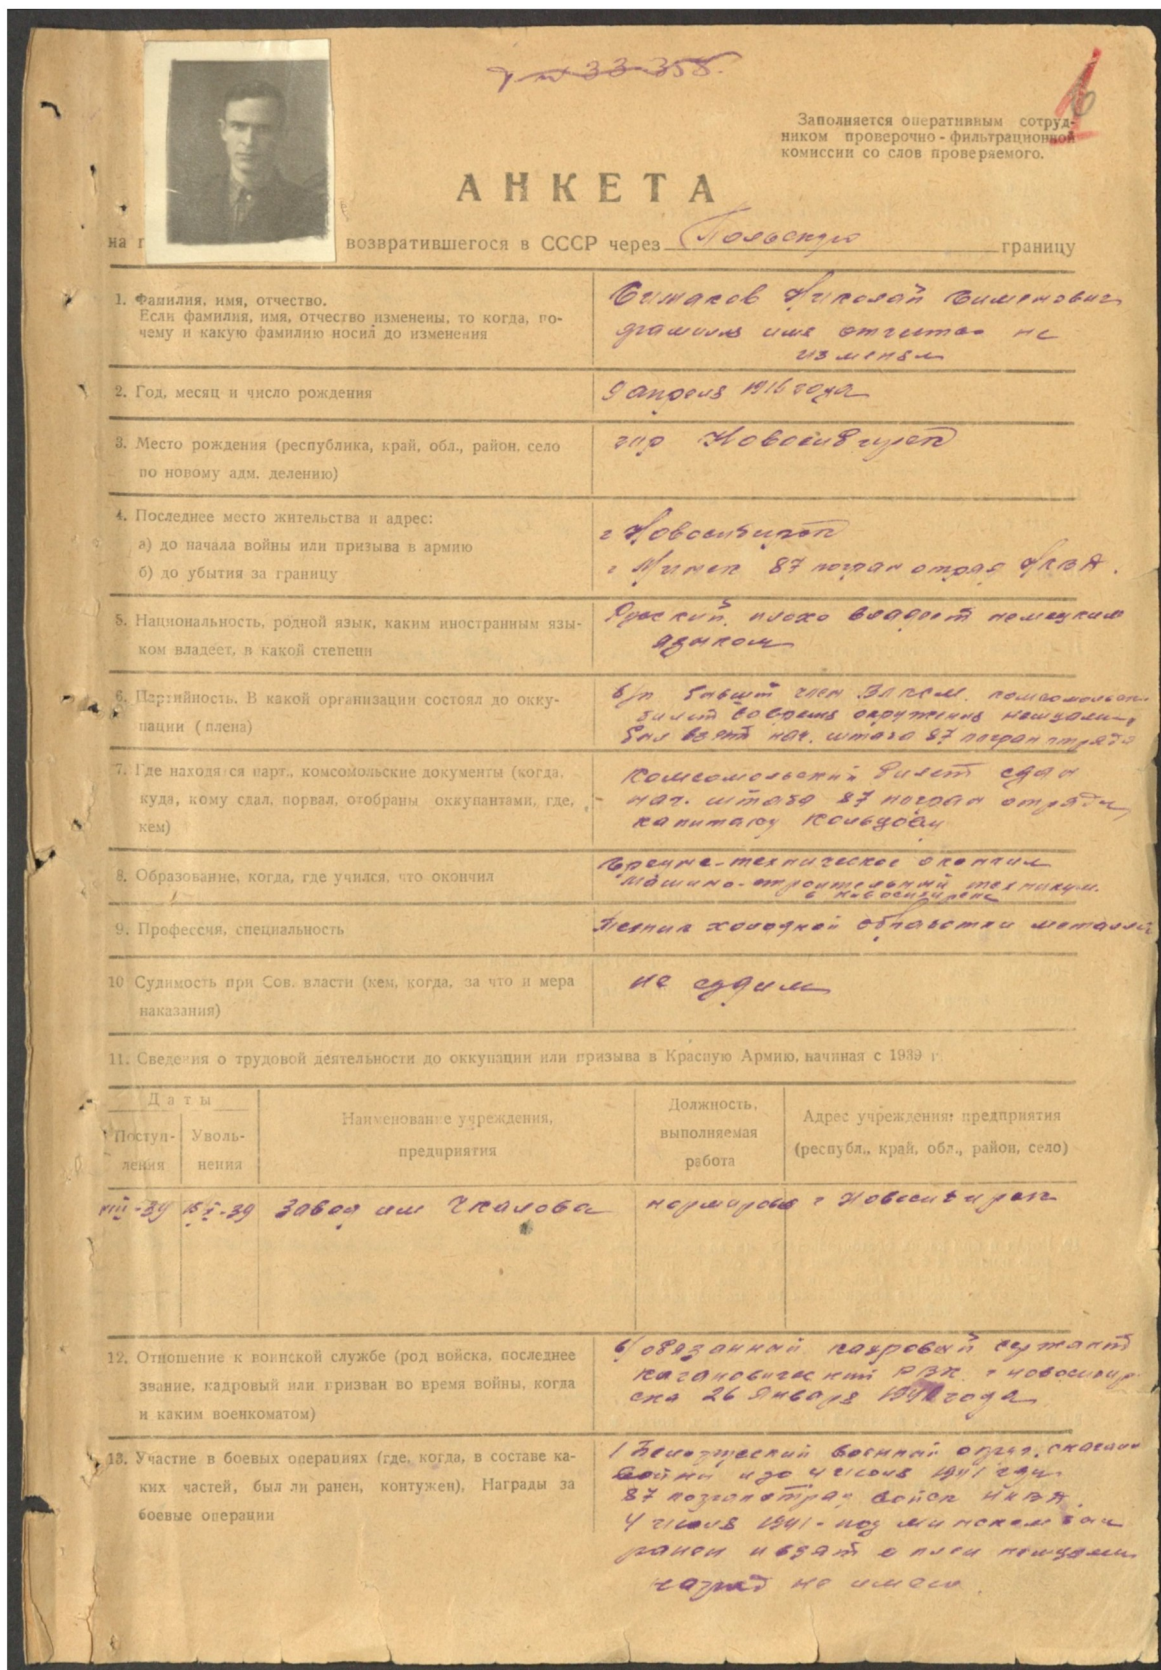 33-358.
Заполняется оперативным сотруд-
ником проверочно-фильтрационной
комиссии со слов проверяемого.
АНКЕТА
на возвратившегося в СССР через Польскую границу
1. Фамилия, имя, отчество.
Если фамилия, имя, отчество изменены, то когда, по-
чему и какую фамилию носил до изменения
Николай
фамилия имя отчество не
изменял
2. Год, месяц и число рождения
9 апреля 1916 года
3. Место рождения (республика, край, обл., район, село
по новому адм. делению)
гор Новосибирск
4. Последнее место жительства и адрес:
а) до начала войны или призыва в армию
г Новосибирск
б) до убытия за границу
г Минск 87 погран отряд НКВД.
5. Национальность, родной язык, каким иностранным язы-
ком владеет, в какой степени
Русский, плохо владеет немецким
языком
6. Партийность. В какой организации состоял до окку-
пации (плена)
б/п бывший член ВЛКСМ. комсомольск.
билет во время окружения
был взят нач. штаба 87 погран отряда
7. Где находятся парт., комсомольские документы (когда,
куда, кому сдал, порвал, отобраны оккупантами, где,
кем)
Комсомольский билет сдан
нач. штаба 87 погран отряда
капитану Кольцову
8. Образование, когда, где учился, что окончил
Средне-техническое окончил
машино-строительный техникум.
в Новосибирске
9. Профессия, специальность
Техник холодной обработки металла
10 Судимость при Сов. власти (кем, когда, за что и мера
наказания)
не судим
11. Сведения о трудовой деятельности до оккупации или призыва в Красную Армию, начиная с 1939 г.
Даты
Поступ-
ления
Уволь-
нения
Наименование учреждения,
предприятия
Должность,
выполняемая
работа
Адрес учреждения: предприятия
(республ., край, обл., район, село)
VIII-39 XI-39 Завод им Чкалова нормировщ г Новосибирск
12. Отношение к воинской службе (род войска, последнее
звание, кадровый или призван во время войны, когда
и каким военкоматом)
в/обязанный кадровый сержант
Кагановический РВК. г Новосибир
ска 26 января года
13. Участие в боевых операциях (где, когда, в составе ка-
ких частей, был ли ранен, контужен), Награды за
боевые операции
военный округ.
войны и до 4 июля 1941 года
87 погранотряд войск НКВД.
4 июля 1941 - под Минском был
ранен и взят в плен немцами
наград не имею.